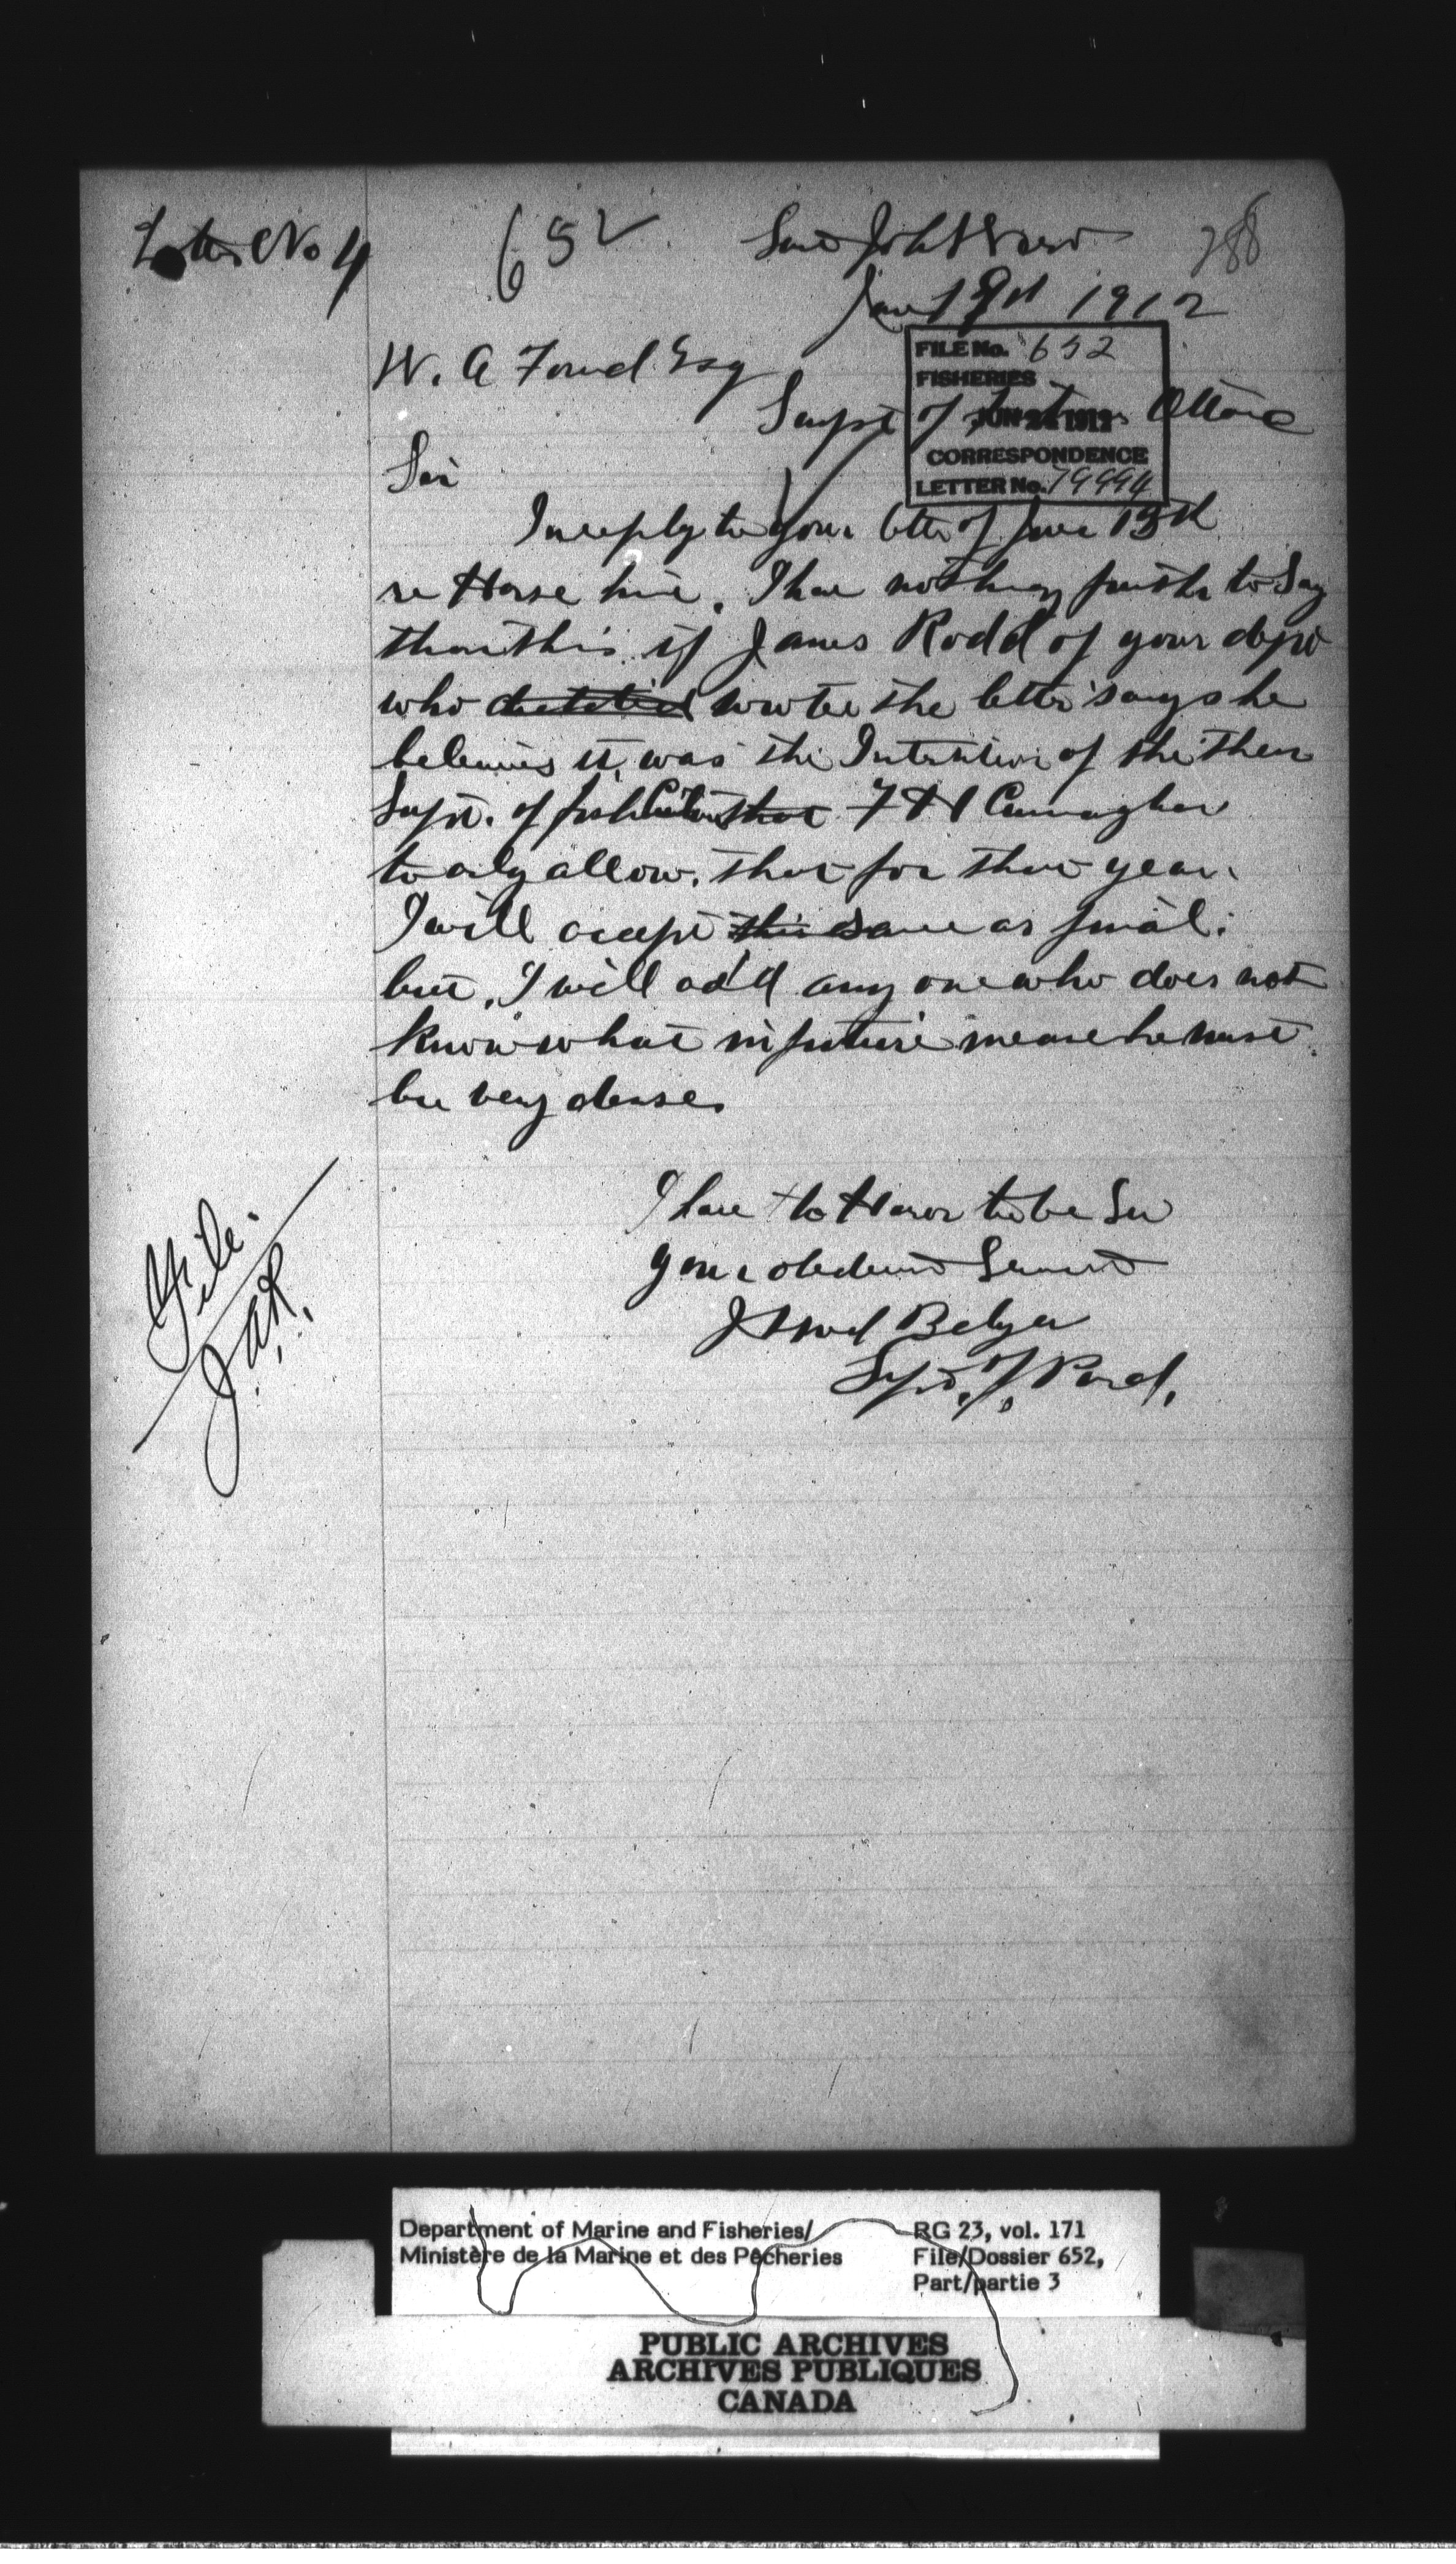 Letter No 4
652
788
June 19th 1912
W. A Found Esq
Supt of Fisheries Ottawa
FILE No. 652
FISHERIES
JUN 24 1912
CORRESPONDENCE
LETTER No. 79994
Sir
In reply to your letter of June 15th
re Horse hire. I have nothing further to Say
than this if James Rodd of your dept
who dictated wrote the letter says he
believes it was the Intention of the then
Supt. of fish Culture that F H Cunningham
to only allow that for that year.
I will accept this same as final.
but, I will add any one who does not
know what in future means he must
be very dense.
I have the Honor to be Sir
your obedient Servant
Belyea
Supt. of Pond.
File.
J.A.R.
Department of Marine and Fisheries/
Ministère de la Marine et des Pêcheries
RG 23, vol. 171
File/Dossier 652,
Part/partie 3
PUBLIC ARCHIVES
ARCHIVES PUBLIQUES
CANADA